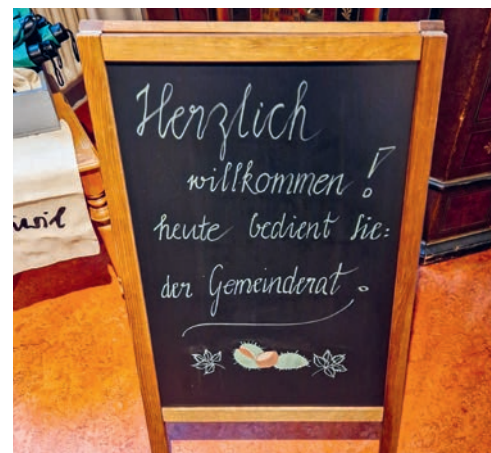 Herzlich
willkommen!
heute bedient Sie:
der Gemeinderat.